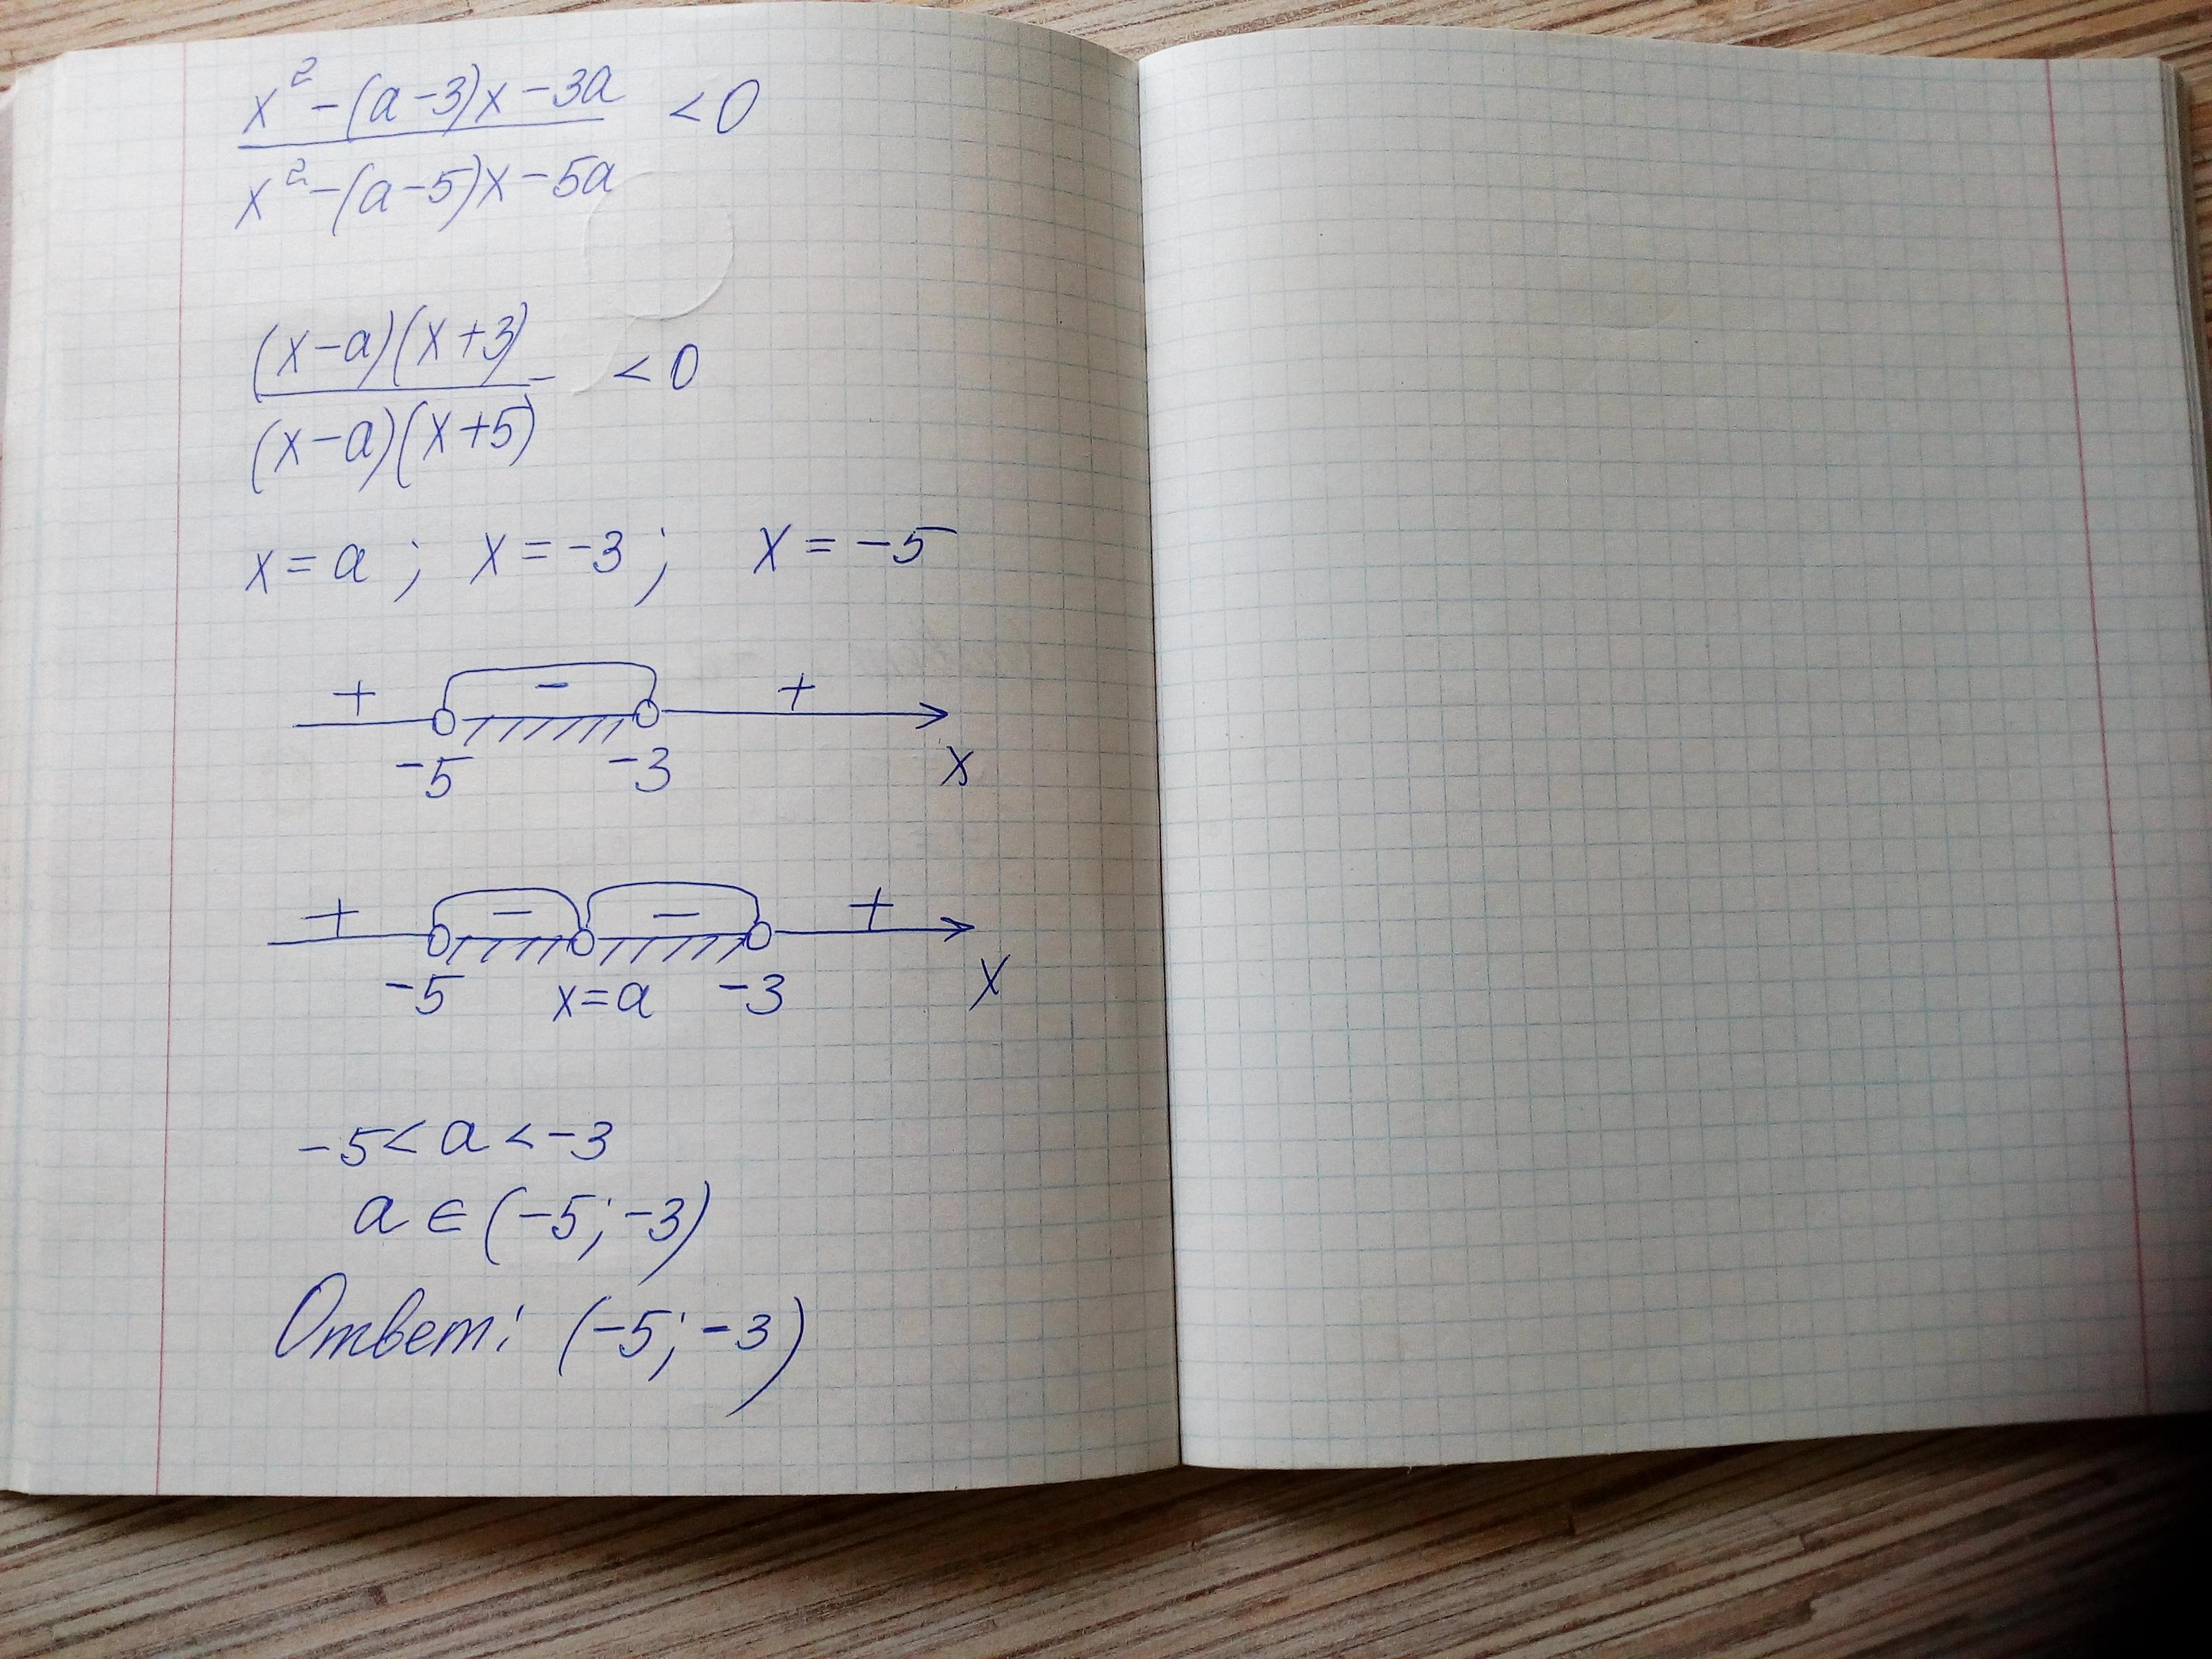 x² - (a - 3)x - 3a < 0
x² - (a - 5)x - 5a
(x - a)(x + 3) < 0
(x - a)(x + 5)
x = a ; x = -3 ; x = -5
+ - +
-5 -3 x
+ - - +
-5 x = a -3 x
-5 < a < -3
a ∈ (-5; -3)
Ответ: (-5; -3)